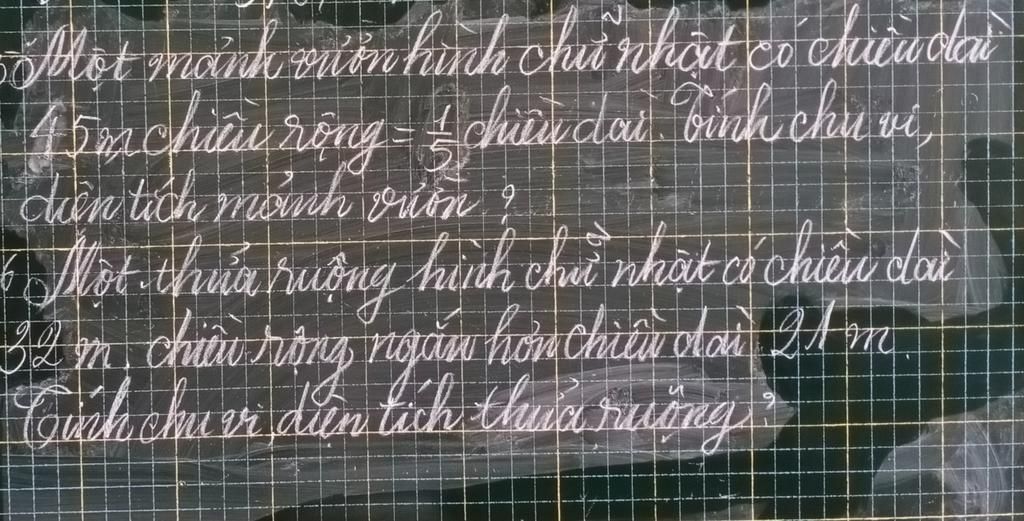 Một mảnh vườn hình chữ nhật có chiều dài
45m chiều rộng = 1/5 chiều dài. Tính chu vi,
diện tích mảnh vườn ?
6 Một thửa ruộng hình chữ nhật có chiều dài
32 m. chiều rộng ngắn hơn chiều dài 21 m.
Tính chu vi, diện tích thửa ruộng ?